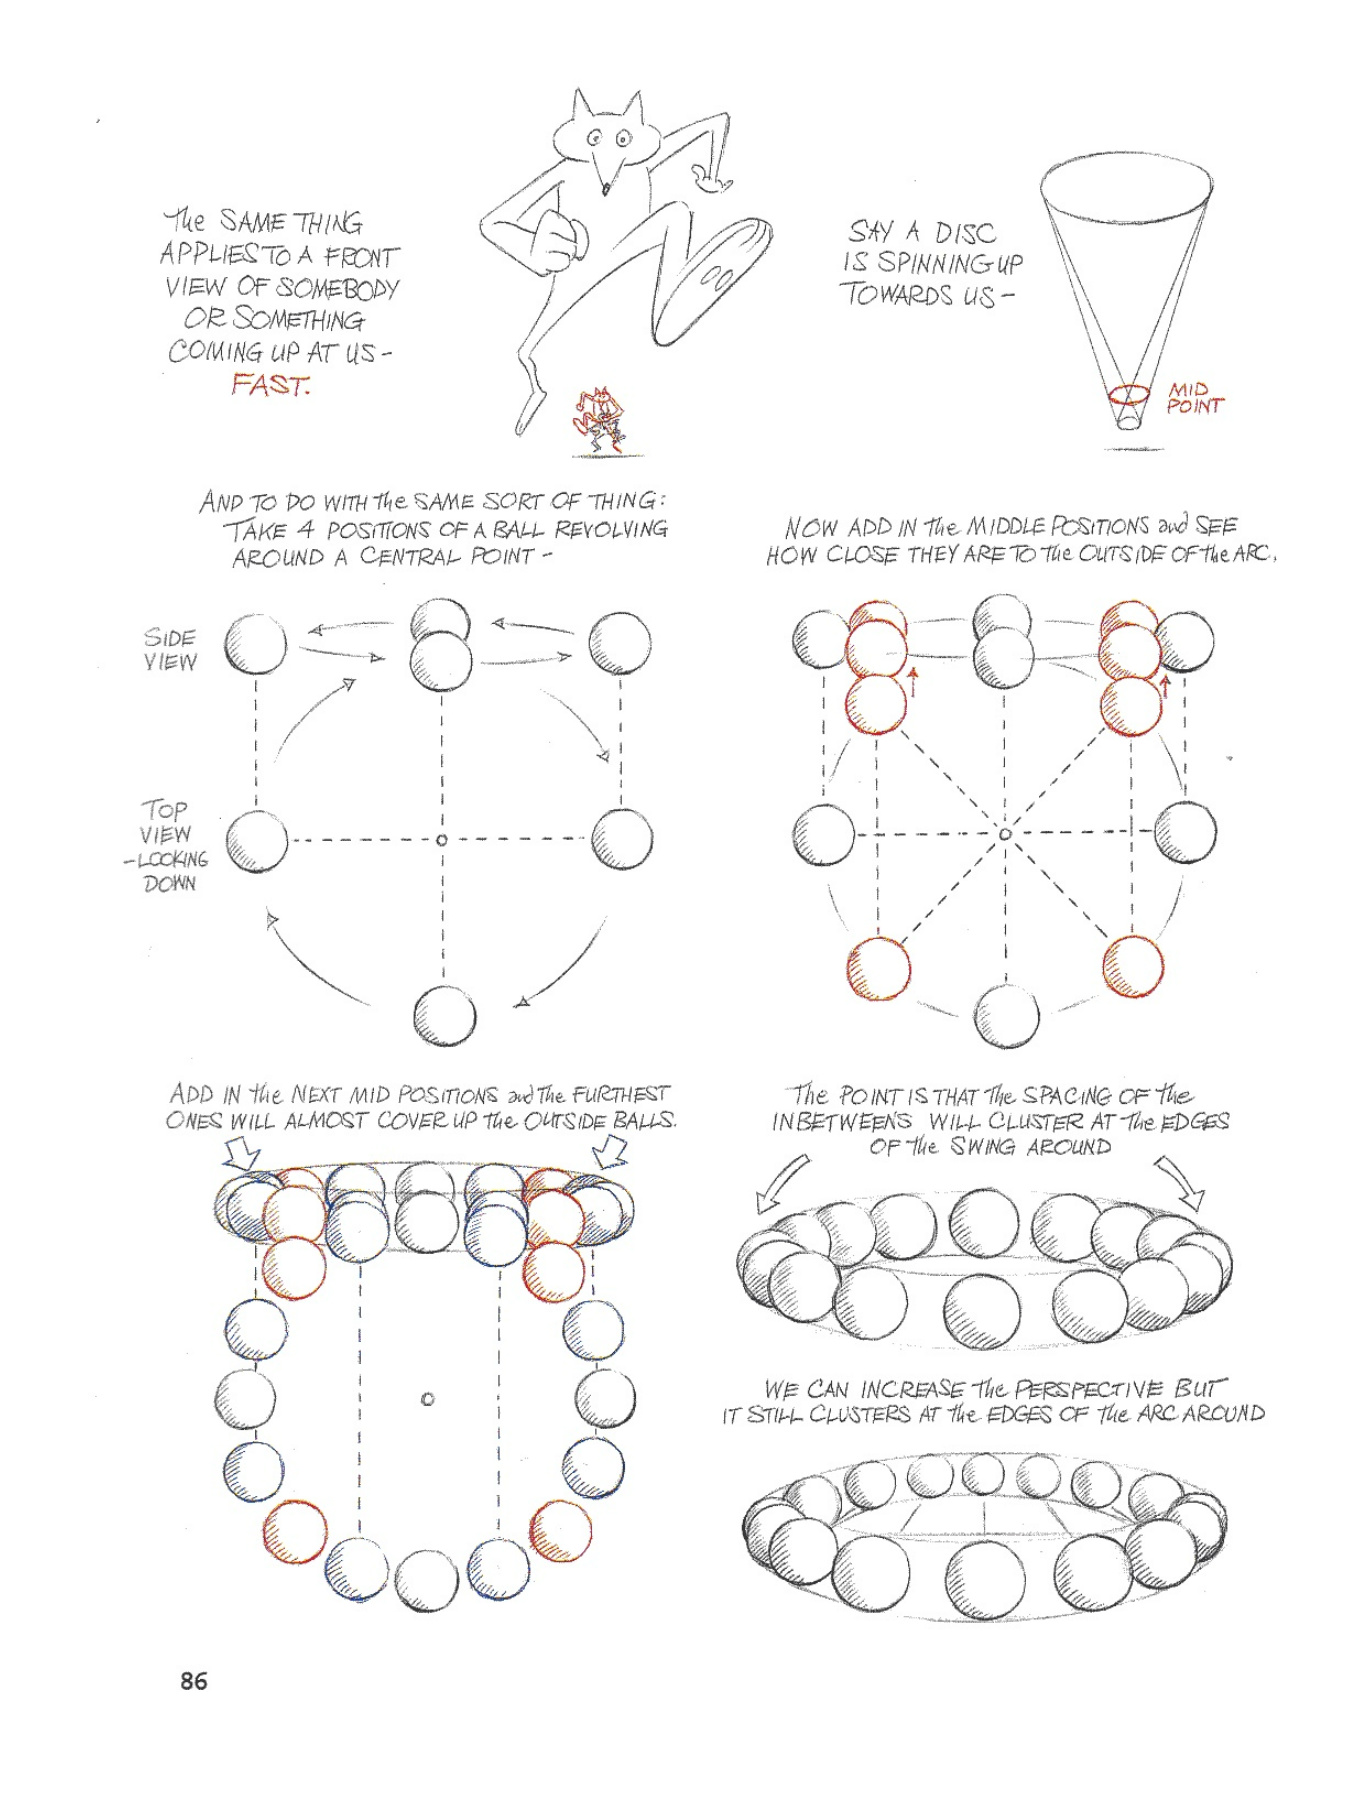 The SAME THING
APPLIES TO A FRONT
VIEW OF SOMEBODY
OR SOMETHING
COMING UP AT US-
FAST.
SAY A DISC
IS SPINNING UP
TOWARDS US-
MID
POINT
AND TO DO WITH The SAME SORT OF THING:
TAKE 4 POSITIONS OF A BALL REVOLVING
AROUND A CENTRAL POINT-
SIDE
VIEW
TOP
VIEW
-LOOKING
DOWN
NOW ADD IN The MIDDLE POSITIONS and SEE
HOW CLOSE THEY ARE TO The OUTSIDE OF The ARC.
ADD IN the NEXT MID POSITIONS and The FURTHEST
ONES WILL ALMOST COVER UP The OUTSIDE BALLS.
The POINT IS THAT The SPACING OF The
INBETWEENS WILL CLUSTER AT The EDGES
OF The SWING AROUND
WE CAN INCREASE The PERSPECTIVE BUT
IT STILL CLUSTERS AT The EDGES OF The ARC AROUND
86